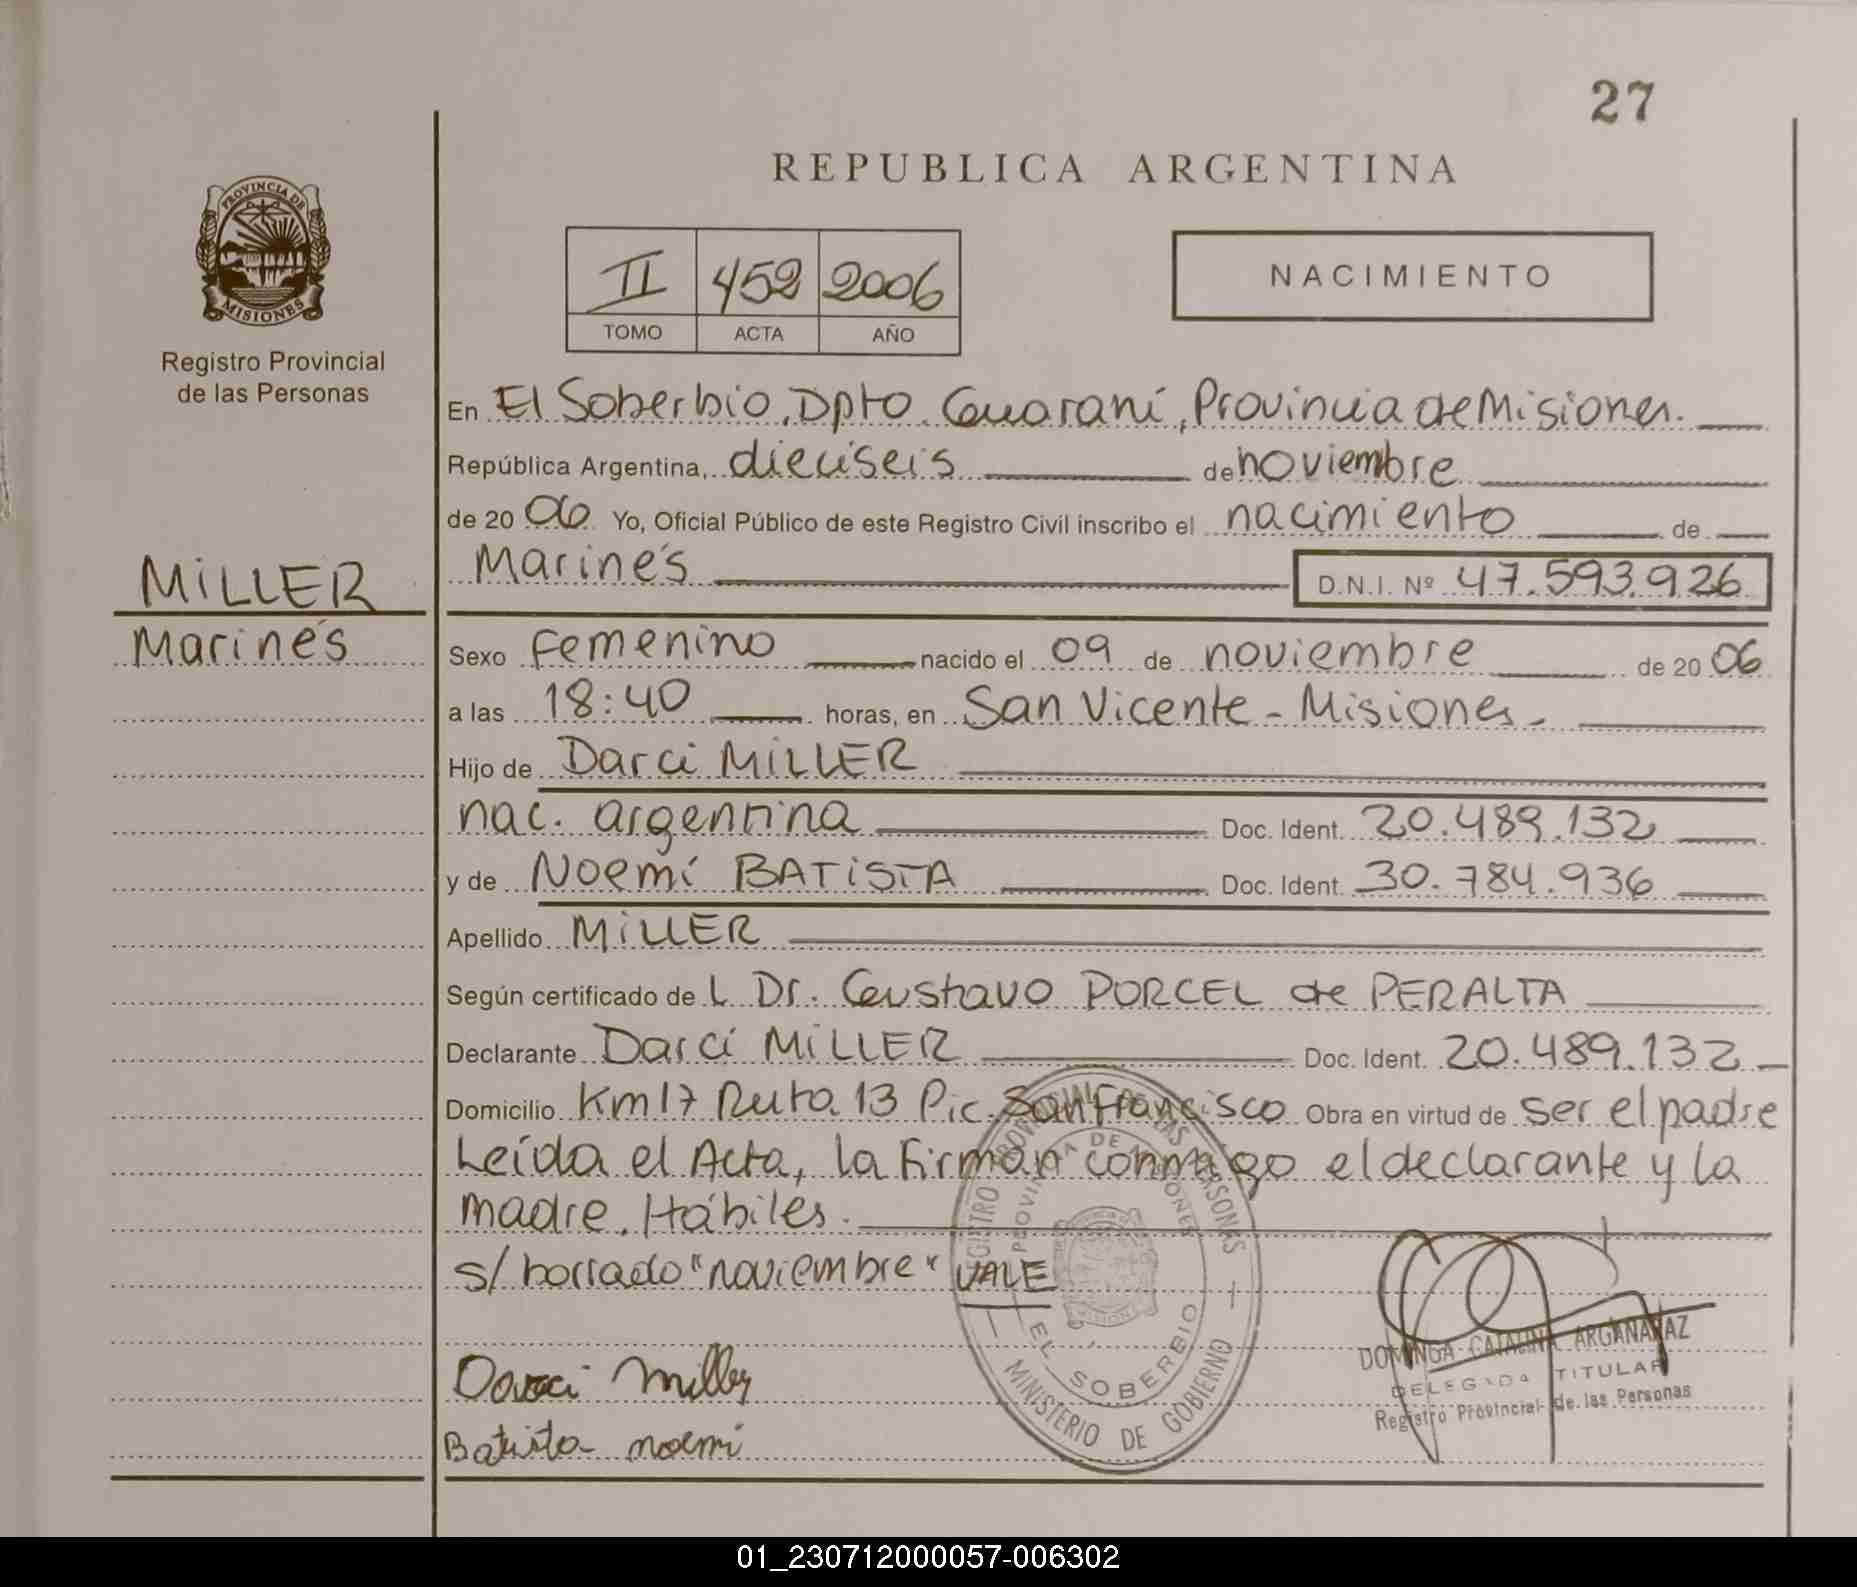 27
REPUBLICA ARGENTINA
PROVINCIA DE
MISIONES
Registro Provincial
de las Personas
II 452 2006
TOMO ACTA AÑO
NACIMIENTO
En El Soberbio, Dpto. Guaraní, Provincia de Misiones.
República Argentina, dieciseis de noviembre
de 2006 Yo, Oficial Público de este Registro Civil inscribo el nacimiento de
MiLLER
Marinés
Marinés D.N.I. Nº 47.593.926
Sexo Femenino nacido el 09 de noviembre de 2006
a las 18:40 horas, en San Vicente - Misiones.
Hijo de Darci MiLLER
nac. argentina Doc. Ident. 20.489.132
y de Noemí BATiSTA Doc. Ident. 30.784.936
Apellido MiLLER
Según certificado de L Dr. Gustavo PORCEL de PERALTA
Declarante Darci MiLLER Doc. Ident. 20.489.132
Domicilio Km 17 Ruta 13 Pic. San Francisco Obra en virtud de ser el padre
Leída el Acta, la Firman conmigo el declarante y la
madre. Hábiles.
s/ borrado "noviembre" VALE
Darci Miller
Batista noemi
REGISTRO PROVINCIAL DE LAS PERSONAS
PROVINCIA DE MISIONES
EL SOBERBIO
MINISTERIO DE GOBIERNO
DOMINGA CATALINA ARGAÑARAZ
DELEGADA TITULAR
Registro Provincial de las Personas
01_230712000057-006302